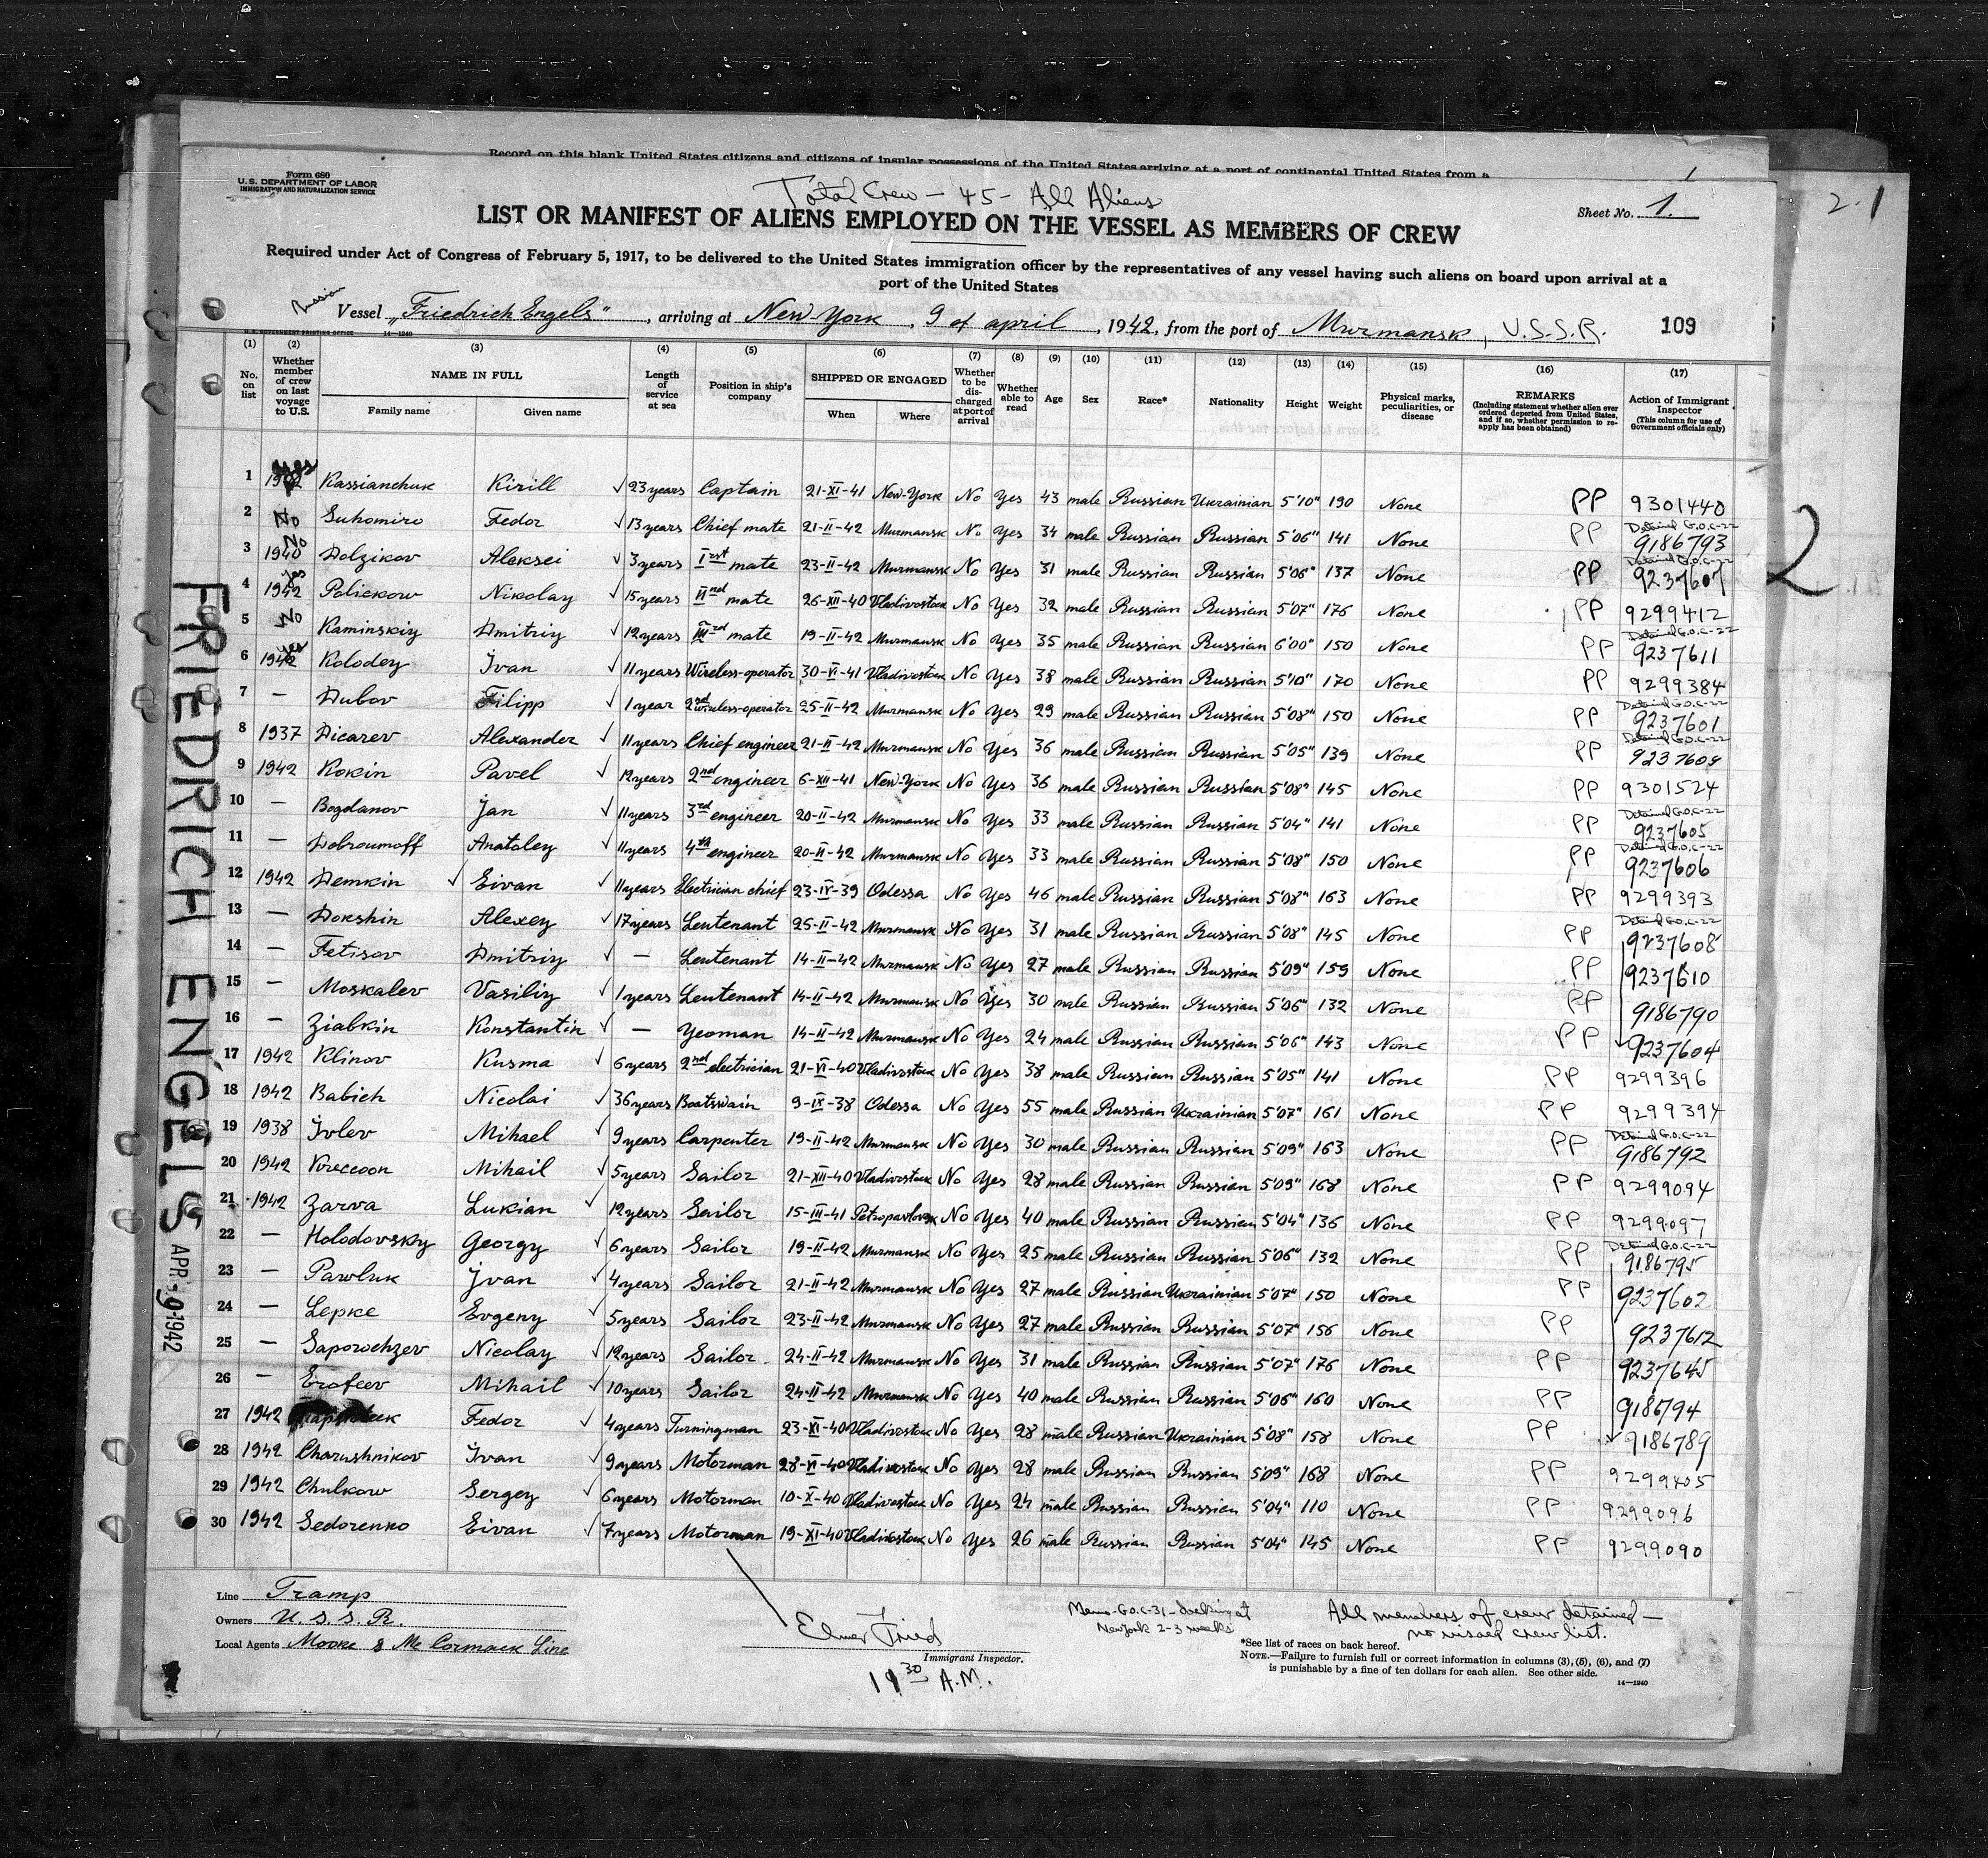 Record on this blank United States citizens and citizens of insular possessions of the United States arriving at a port of continental United States from a
1
2-1
Form 680
U.S. DEPARTMENT OF LABOR
IMMIGRATION AND NATURALIZATION SERVICE
Total Crew - 45 - All Aliens
Sheet No. 1.
LIST OR MANIFEST OF ALIENS EMPLOYED ON THE VESSEL AS MEMBERS OF CREW
Required under Act of Congress of February 5, 1917, to be delivered to the United States immigration officer by the representatives of any vessel having such aliens on board upon arrival at a
port of the United States
Russian
Vessel „Friedrich Engels", arriving at New-York, 9 of april, 1942, from the port of Murmansk, U.S.S.R. 109
U.S. GOVERNMENT PRINTING OFFICE 14—1240
(1) (2) (3) (4) (5) (6) (7) (8) (9) (10) (11) (12) (13) (14) (15) (16) (17)
No. on list Whether member of crew on last voyage to U.S. NAME IN FULL Family name Given name Length of service at sea Position in ship's company SHIPPED OR ENGAGED When Where Whether to be discharged at port of arrival Whether able to read Age Sex Race* Nationality Height Weight Physical marks, peculiarities, or disease REMARKS (Including statement whether alien ever ordered deported from United States, and if so, whether permission to reapply has been obtained) Action of Immigrant Inspector (This column for use of Government officials only)
1 1942 yes Kassianchuk Kirill √ 23 years Captain 21-XI-41 New-York No Yes 43 male Russian Ukrainian 5'10" 190 None PP 9301440
2 No Suhomiro Fedor √ 13 years Chief mate 21-II-42 Murmansk No Yes 34 male Russian Russian 5'06" 141 None PP Detained G.O.C-22 9186793
3 1940 No Dolzikov Aleksei √ 3 years Ist mate 23-II-42 Murmansk No Yes 31 male Russian Russian 5'06" 137 None PP Detained G.O.C-22 9237607
4 1942 yes Polickow Nikolay √ 15 years IInd mate 26-XII-40 Vladivostock No Yes 32 male Russian Russian 5'07" 176 None PP 9299412
5 No Kaminskiy Dmitriy √ 12 years IIIrd mate 19-II-42 Murmansk No Yes 35 male Russian Russian 6'00" 150 None PP Detained G.O.C-22 9237611
6 1942 yes Kolodey Ivan √ 11 years Wireless-operator 30-VI-41 Vladivostock No Yes 38 male Russian Russian 5'10" 170 None PP 9299384
7 — Dubov Filipp √ 1 year 2nd wireless-operator 25-II-42 Murmansk No Yes 29 male Russian Russian 5'08" 150 None PP Detained G.O.C-22 9237601
8 1937 Dicarev Alexander √ 11 years Chief engineer 21-II-42 Murmansk No Yes 36 male Russian Russian 5'05" 139 None PP Detained G.O.C-22 9237609
9 1942 Kokin Pavel √ 12 years 2nd engineer 6-XII-41 New-York No Yes 36 male Russian Russian 5'08" 145 None PP 9301524
10 — Bogdanov Jan √ 11 years 3rd engineer 20-II-42 Murmansk No Yes 33 male Russian Russian 5'04" 141 None PP Detained G.O.C-22 9237605
11 — Debroumoff Anatoley √ 11 years 4th engineer 20-II-42 Murmansk No Yes 33 male Russian Russian 5'08" 150 None PP Detained G.O.C-22 9237606
12 1942 Demkin √ Eivan √ 11 years Electrician chief 23-IV-39 Odessa No Yes 46 male Russian Russian 5'08" 163 None PP 9299393
13 — Dokshin Alexey √ 17 years Leutenant 25-II-42 Murmansk No Yes 31 male Russian Russian 5'08" 145 None PP Detained G.O.C-22 9237608
14 — Fetisov Dmitriy √ — Leutenant 14-II-42 Murmansk No Yes 27 male Russian Russian 5'09" 159 None PP 9237610
15 — Moskalev Vasiliy √ 1 years Leutenant 14-II-42 Murmansk No Yes 30 male Russian Russian 5'06" 132 None PP 9186790
16 — Ziabkin Konstantin √ — Yeoman 14-II-42 Murmansk No Yes 24 male Russian Russian 5'06" 143 None PP 9237604
17 1942 Klinov Kusma √ 6 years 2nd electrician 21-VI-40 Vladivostock No Yes 38 male Russian Russian 5'05" 141 None PP 9299396
18 1942 Babich Nicolai √ 36 years Boatswain 9-IX-38 Odessa No Yes 55 male Russian Ukrainian 5'07" 161 None PP 9299394
19 1938 Ivlev Mihael √ 9 years Carpenter 19-II-42 Murmansk No Yes 30 male Russian Russian 5'09" 163 None PP Detained G.O.C-22 9186792
20 1942 Mihail √ 5 years Sailor 21-XII-40 Vladivostock No Yes 28 male Russian Russian 5'09" 168 None PP 9299094
21 1942 Zarva Lukian √ 12 years Sailor 15-III-41 Petropavlovsk No Yes 40 male Russian Russian 5'04" 136 None PP 9299097
22 — Holodovsky Georgy √ 6 years Sailor 19-II-42 Murmansk No Yes 25 male Russian Russian 5'06" 132 None PP Detained G.O.C-22 9186795
23 — Pawluk Ivan √ 4 years Sailor 21-II-42 Murmansk No Yes 27 male Russian Ukrainian 5'07" 150 None PP 9237602
24 — Lepke Evgeny √ 5 years Sailor 23-II-42 Murmansk No Yes 27 male Russian Russian 5'07" 156 None PP 9237612
25 — Saporochzev Nicolay √ 12 years Sailor 24-II-42 Murmansk No Yes 31 male Russian Russian 5'07" 176 None PP 9237645
26 — Erofeev Mihail √ 10 years Sailor 24-II-42 Murmansk No Yes 40 male Russian Russian 5'06" 160 None PP 9186794
27 1942 Fedor √ 4 years Turningman 23-XI-40 Vladivostock No Yes 28 male Russian Ukrainian 5'08" 158 None PP 9186789
28 1942 Charushnikov Ivan √ 9 years Motorman 28-VI-40 Vladivostock No Yes 28 male Russian Russian 5'09" 168 None PP 9299405
29 1942 Chulkow Sergey √ 6 years Motorman 10-X-40 Vladivostock No Yes 24 male Russian Russian 5'04" 110 None PP 9299096
30 1942 Sedorenko Eivan √ 7 years Motorman 19-XI-40 Vladivostock No Yes 26 male Russian Russian 5'04" 145 None PP 9299090
2
FRIEDRICH ENGELS APR -9 1942
Line Tramp
Owners U.S.S.R.
Local Agents Moore & McCormack Line
Elmer Fried
Immigrant Inspector.
11 30 A.M.
Memo-G.O.C-31-docking at
New York 2-3 weeks
All members of crew detained —
no visaed crew list.
*See list of races on back hereof.
NOTE.—Failure to furnish full or correct information in columns (3), (5), (6), and (7)
is punishable by a fine of ten dollars for each alien. See other side.
14—1240